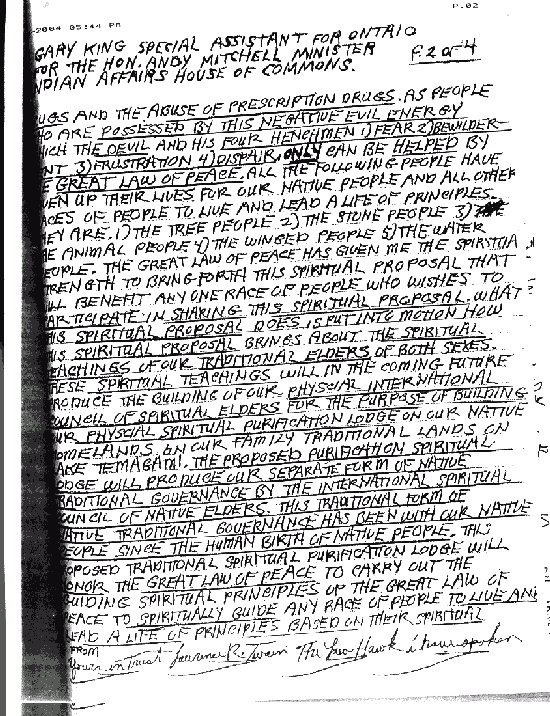 P.02
-2004 05:44 PM
GARY KING SPECIAL ASSISTANT FOR ONTARIO
FOR THE HON. ANDY MITCHELL MINISTER
NDIAN AFFAIRS HOUSE OF COMMONS.
P.2 OF 4
UGS AND THE ABUSE OF PRESCRIPTION DRUGS. AS PEOPLE
HO ARE POSSESSED BY THIS NEGATIVE EVIL ENERGY
HICH THE DEVIL AND HIS FOUR HENCHMEN 1) FEAR 2) BEWILDER-
NT 3) FRUSTRATION 4) DISPAIR, ONLY CAN BE HELPED BY
E GREAT LAW OF PEACE. ALL THE FOLLOWING PEOPLE HAVE
VEN UP THEIR LIVES FOR OUR NATIVE PEOPLE AND ALL OTHER
ACES OF PEOPLE TO LIVE AND LEAD A LIFE OF PRINCIPLES.
HEY ARE. 1) THE TREE PEOPLE 2) THE STONE PEOPLE 3)
HE ANIMAL PEOPLE 4) THE WINGED PEOPLE 5) THE WATER
EOPLE. THE GREAT LAW OF PEACE HAS GIVEN ME THE SPIRITUA
TRENGTH TO BRING FORTH THIS SPIRITUAL PROPOSAL THAT
ILL BENEFIT ANY ONE RACE OF PEOPLE WHO WISHES TO
PARTICIPATE IN SHARING THIS SPIRITUAL PROPOSAL. WHAT
HIS SPIRITUAL PROPOSAL DOES IS PUT INTO MOTION HOW
HIS SPIRITUAL PROPOSAL BRINGS ABOUT THE SPIRITUAL
EACHINGS OF OUR TRADITIONAL ELDERS OF BOTH SEXES.
HESE SPIRITUAL TEACHINGS WILL IN THE COMING FUTURE
RODUCE THE BUILDING OF OUR PHYSCIAL INTERNATIONAL
OUNCIL OF SPIRITUAL ELDERS FOR THE PURPOSE OF BUILDING
UR PHYSCIAL SPIRITUAL PURIFICATION LODGE ON OUR NATIVE
OMELANDS ON OUR FAMILY TRADITIONAL LANDS ON
AKE TEMAGAMI. THE PROPOSED PURIFICATION SPIRITUAL
ODGE WILL PRODUCE OUR SEPARATE FORM OF NATIVE
RADITIONAL GOVERNANCE BY THE INTERNATIONAL SPIRITUAL
OUNCIL OF NATIVE ELDERS. THIS TRADITIONAL FORM OF
NATIVE TRADITIONAL GOVERNANCE HAS BEEN WITH OUR NATIVE
EOPLE SINCE THE HUMAN BIRTH OF NATIVE PEOPLE. THIS
OPOSED TRADITIONAL SPIRITUAL PURIFICATION LODGE WILL
ONOR THE GREAT LAW OF PEACE TO CARRY OUT THE
UIDING SPIRITUAL PRINCIPLES OF THE GREAT LAW OF
PEACE TO SPIRITUALLY GUIDE ANY RACE OF PEOPLE TO LIVE AND
LEAD A LIFE OF PRINCIPLES BASED ON THEIR SPIRITUAL
FROM
Yours in Trust Hawk i have spoken